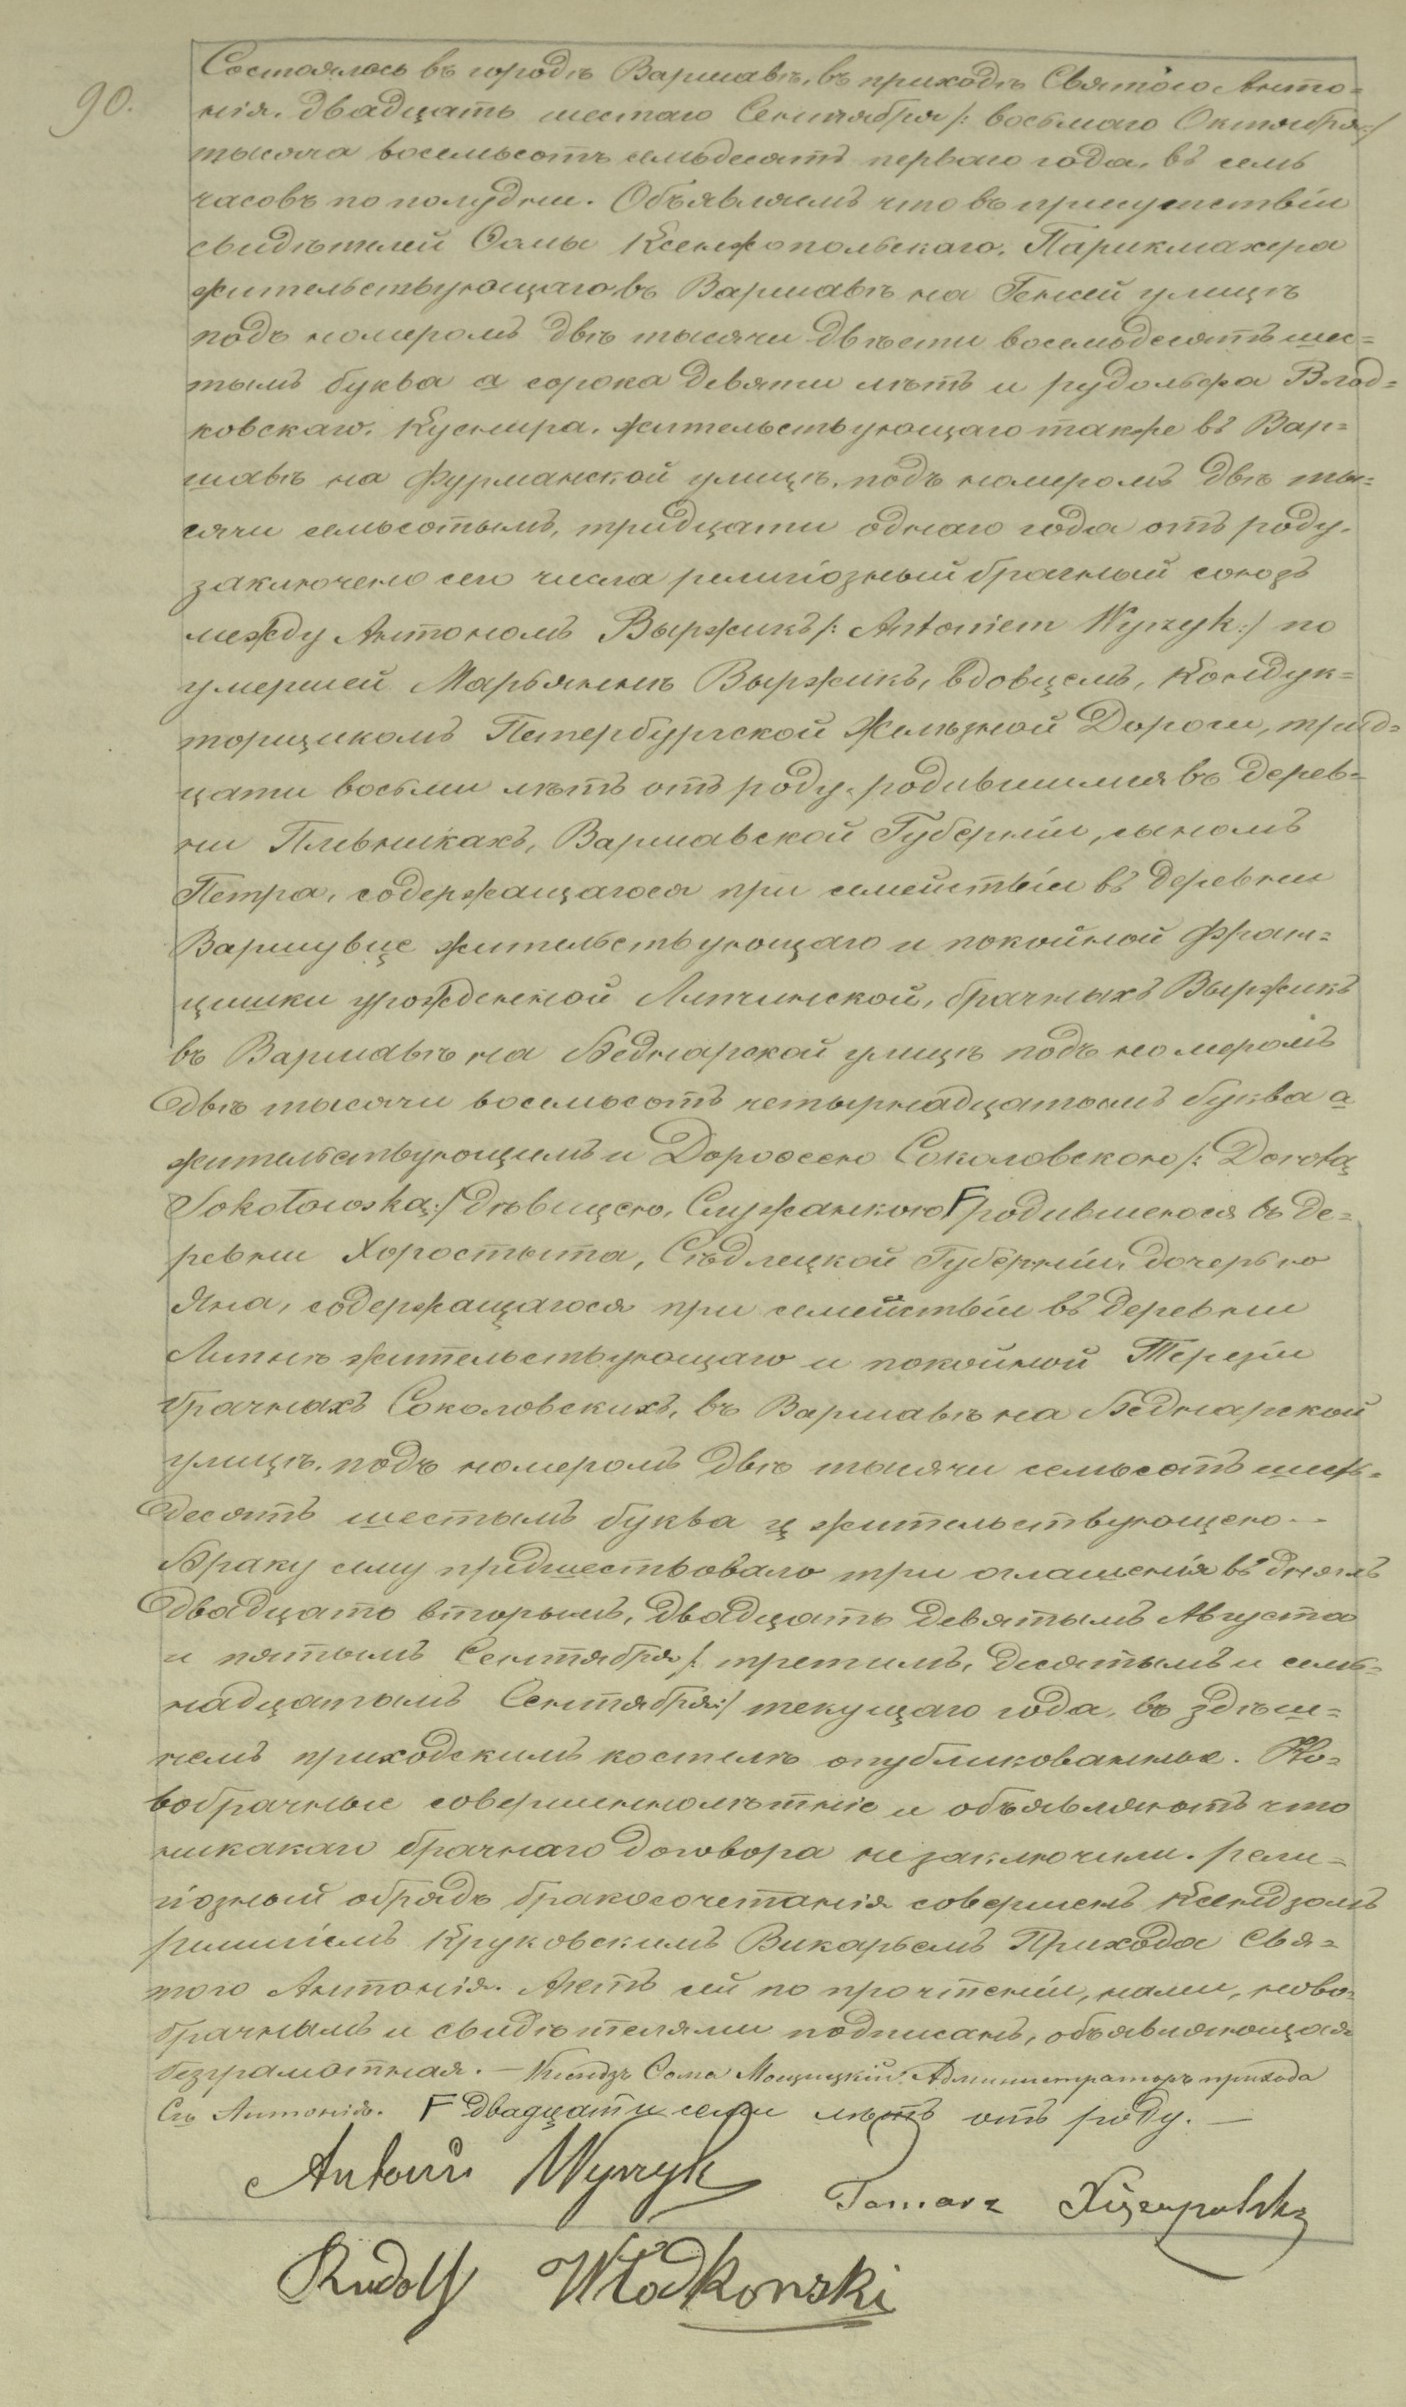 90.
Состоялось въ городѣ Варшавѣ, въ приходѣ Святого Анто-
нія, двадцать шестаго Сентября /: восьмаго Октября :/
тысяча восемьсотъ семьдесятъ перваго года, въ семь
часовъ по полудни. Объявляемъ что въ присутствіи
свидѣтелей Ѳомы Ксенжопольскаго, Парикмахера
жительствующаго въ Варшавѣ на Генсей улицѣ
подъ номеромъ двѣ тысячи двѣсти восемьдесятъ шес-
тымъ буква а сорока девяти лѣтъ и Рудольфа Влод-
ковскаго, Кусмира, жительствующаго также въ Вар-
шавѣ на Фурманской улицѣ, подъ номеромъ двѣ ты-
сячи семьсотымъ, тридцати однаго года отъ роду,
заключено сего числа религіозный брачный союзъ
между Антономъ Выржикъ /: Antoniem Wyrzyk :/ по
умершей Марьяннѣ Выржикъ, вдовцемъ, Кондук-
торщикомъ Петербургской Желѣзной Дороги, трид-
цати восьми лѣтъ отъ роду, родившимся въ дерев-
ни Пљвникахъ, Варшавской Губерніи, сыномъ
Петра, содержащагося при семействіи въ деревни
Варшувце жительствующаго и покойной Фран-
цишки урожденной Липинской, брачныхъ Выржикъ
въ Варшавѣ на Беднарской улицѣ подъ номеромъ
двѣ тысячи восемьсотъ четырнадцатымъ буква а
жительствующимъ и Доро​ѳеею Соколовскою /: Dorotą
Sokołowską :/ дѣвицею, Служанкою Ⱶ родившеюся въ де-
ревни Хоростыта, Сѣдлецкой Губерніи, дочерью
Яна, содержащагося при семействіи въ деревни
Липнѣ жительствующаго и покойной Терезіи
брачныхъ Соколовскихъ, въ Варшавѣ на Беднарской
улицѣ, подъ номеромъ двѣ тысячи семьсотъ шесть-
десятъ шестымъ буква ц жительствующею.-
Браку сему предшествовало три оглашенія въ дняхъ
двадцать вторымъ, двадцать девятымъ Августа
и пятымъ Сентября /: третимъ, десятымъ и семь-
надцатымъ Сентября :/ текущаго года, въ здѣш-
немъ приходскимъ костелѣ опубликованные. Но-
вобрачные совершеннолѣтніе и объявляютъ что
никакаго брачнаго договора не заключили. Рели-
гіозный обрядъ бракосочетанія совершенъ Ксендзомъ
Круковскимъ Викарьемъ Прихода Свя-
того Антонія. Актъ сей по прочтеніи, нами, ново-
брачнымъ и свидѣтелями подписанъ, объявляющая
безграмотная. — Ксендзъ Ѳома Мощицкій Администраторъ прихода
Св Антонія. Ⱶ двадцати семи лѣтъ отъ роду. —
Antoni Wyrzyk
Tomasz Xiężopolski
Rudolf Włodkowski